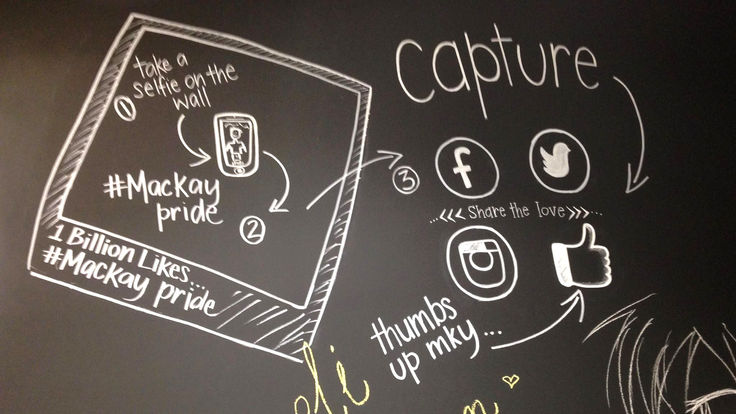 take a
selfie on the
wall
1
#Mackay
pride
2
1 Billion Likes...
#Mackay pride
capture
3
f
...<<< Share the love >>>...
thumbs
up mky...